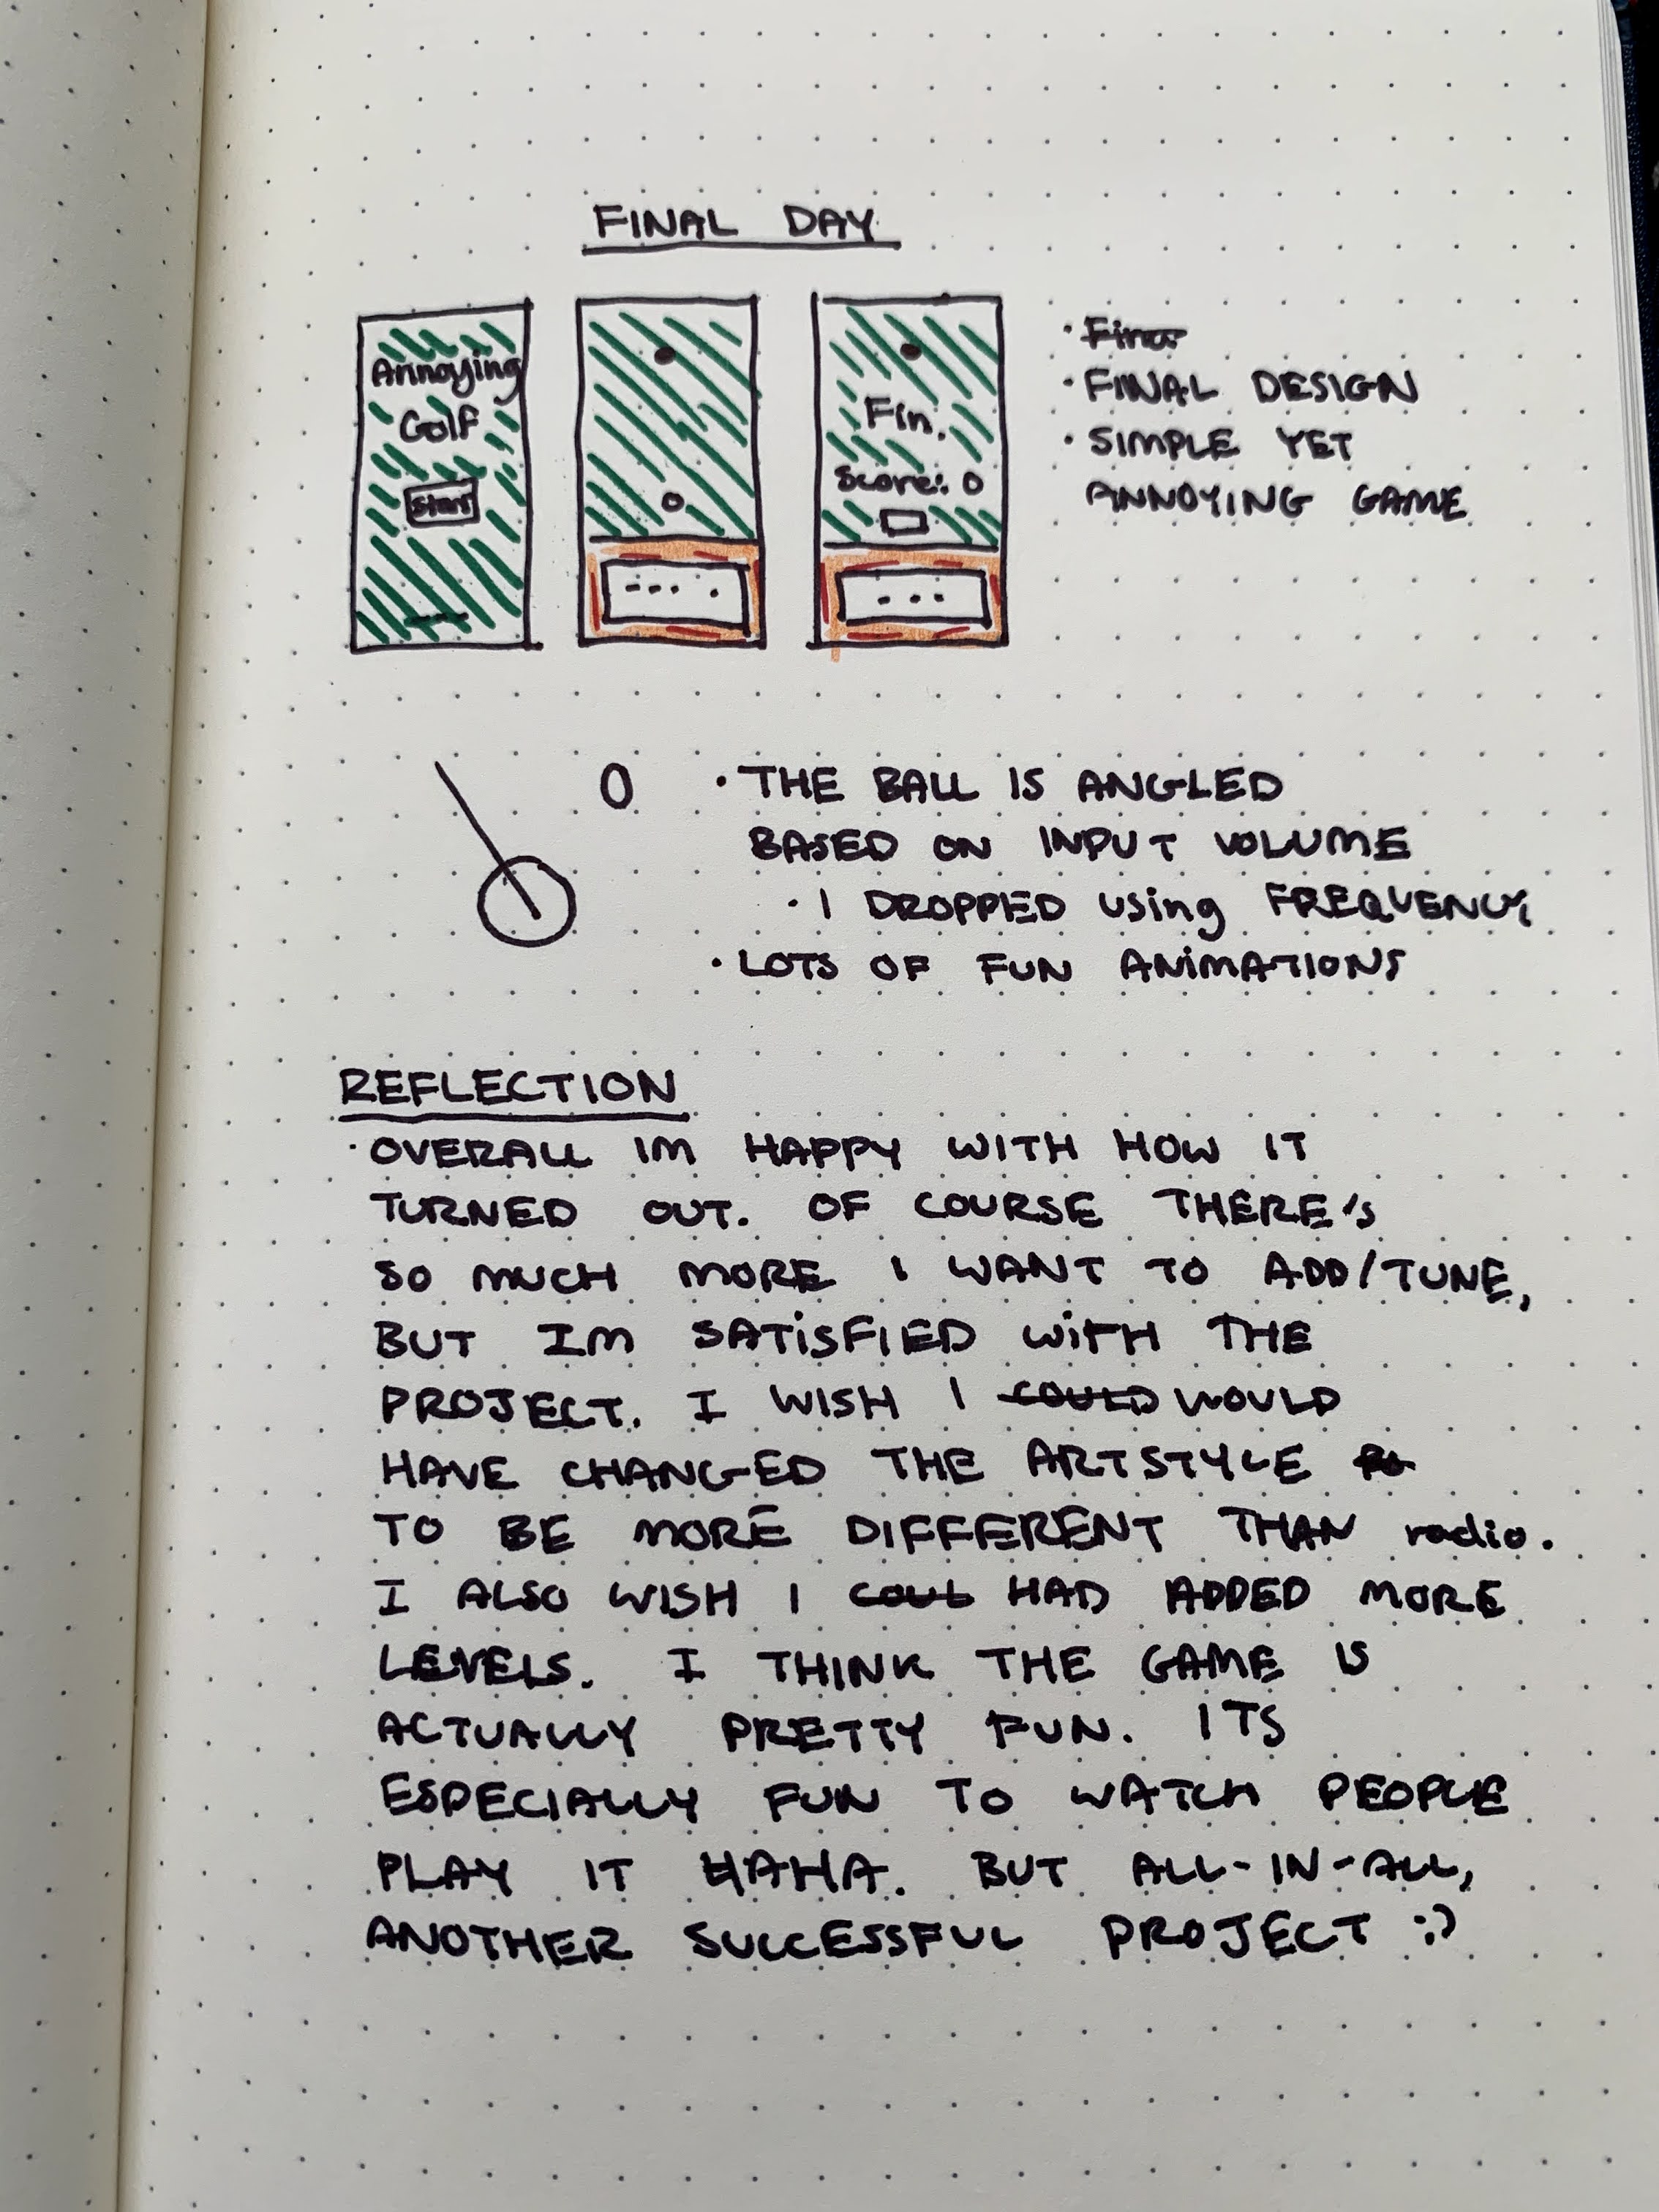 FINAL DAY
Annoying
Golf
Start
Fin.
Score: 0
· Final
· FINAL DESIGN
· SIMPLE YET
ANNOYING GAME
0
· THE BALL IS ANGLED
BASED ON INPUT VOLUME
· I DROPPED using FREQUENCY
· LOTS OF FUN ANIMATIONS
REFLECTION
· OVERALL IM HAPPY WITH HOW IT
TURNED OUT. OF COURSE THERE'S
SO MUCH MORE I WANT TO ADD/TUNE,
BUT IM SATISFIED WITH THE
PROJECT. I WISH I COULD WOULD
HAVE CHANGED THE ARTSTYLE
TO BE MORE DIFFERENT THAN radio.
I ALSO WISH I COUL HAD ADDED MORE
LEVELS. I THINK THE GAME IS
ACTUALLY PRETTY FUN. ITS
ESPECIALLY FUN TO WATCH PEOPLE
PLAY IT HAHA. BUT ALL-IN-ALL,
ANOTHER SUCCESSFUL PROJECT :)